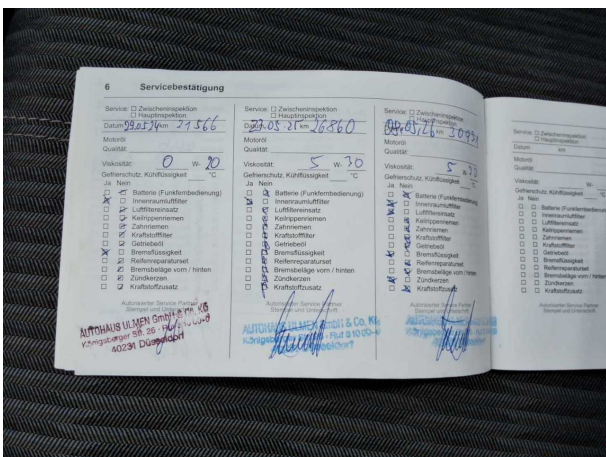 6 Servicebestätigung
Service: ☐ Zwischeninspektion
☐ Hauptinspektion
Datum 29.05.24 km 21566
Motoröl
Qualität:
Viskosität: 0 W- 20
Gefrierschutz, Kühlflüssigkeit °C
Ja Nein
Batterie (Funkfernbedienung)
Innenraumluftfilter
Luftfiltereinsatz
Keilrippenriemen
Zahnriemen
Kraftstofffilter
Getriebeöl
Bremsflüssigkeit
Reifenreparaturset
Bremsbeläge vorn / hinten
Zündkerzen
Kraftstoffzusatz
Autorisierter Service Partner
Stempel und Unterschrift
AUTOHAUS ULMEN GmbH & Co. KG
Königsberger Str. 26 - Ruf
40231 Düsseldorf
Service: ☐ Zwischeninspektion
☐ Hauptinspektion
Datum .05.25 km 26860
Motoröl
Qualität:
Viskosität: 5 W- 30
Gefrierschutz, Kühlflüssigkeit °C
Ja Nein
Batterie (Funkfernbedienung)
Innenraumluftfilter
Luftfiltereinsatz
Keilrippenriemen
Zahnriemen
Kraftstofffilter
Getriebeöl
Bremsflüssigkeit
Reifenreparaturset
Bremsbeläge vorn / hinten
Zündkerzen
Kraftstoffzusatz
Autorisierter Service Partner
Stempel und Unterschrift
AUTOHAUS ULMEN GmbH & Co. KG
Ruf
Düsseldorf
Service: ☐ Zwischeninspektion
☐ Hauptinspektion
.05.26 km
Motoröl
Qualität:
Viskosität: 5 30
Gefrierschutz, Kühlflüssigkeit °C
Ja Nein
Batterie (Funkfernbedienung)
Innenraumluftfilter
Luftfiltereinsatz
Keilrippenriemen
Zahnriemen
Kraftstofffilter
Getriebeöl
Bremsflüssigkeit
Reifenreparaturset
Bremsbeläge vorn / hinten
Zündkerzen
Kraftstoffzusatz
Autorisierter Service Partner
Stempel und Unterschrift
Service: ☐ Zwischeninspektion
☐ Hauptinspektion
Datum km
Motoröl
Qualität:
Viskosität: W-
Gefrierschutz, Kühlflüssigkeit
Ja Nein
Batterie (Funkfernbed
Innenraumluftfilter
Luftfiltereinsatz
Keilrippenriemen
Zahnriemen
Kraftstofffilter
Getriebeöl
Bremsflüssigkeit
Reifenreparaturset
Bremsbeläge vorn /
Zündkerzen
Kraftstoffzusatz
Autorisierter Service Partner
Stempel und Unterschrift